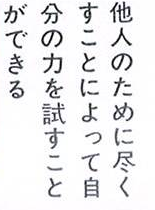 他人のために尽く
すことによって自
分の力を試すこと
ができる